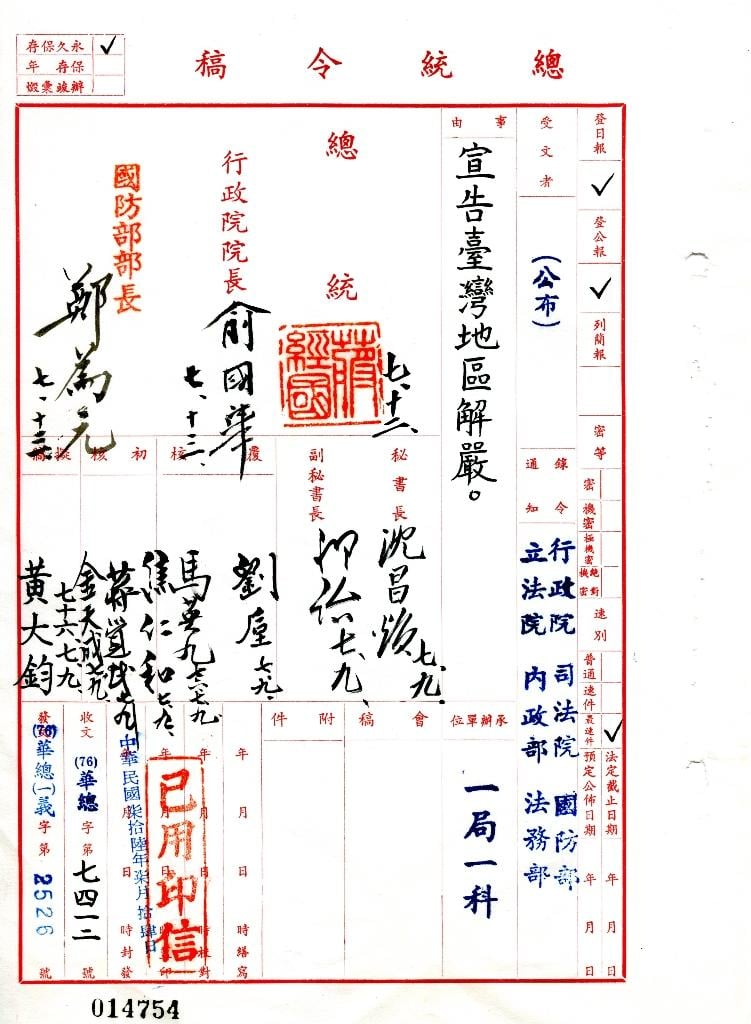 總統令稿
永久保存 ✓
保存 年
辦竣彙燬
登日報 ✓
登公報 ✓
列簡報
密等
密
機密
極機密
絕對機密
速別
普通
速件
最速件 ✓
法定截止日期 年 月 日
預定公佈日期 年 月 日
受文者
(公布)
錄令通知
行政院 司法院 國防部
立法院 內政部 法務部
事由
宣告臺灣地區解嚴。
承辦單位
一局一科
總統
蔣經國
七、十三、
行政院院長
俞國華
七、十三、
國防部部長
鄭為元
七、十三、
秘書長
沈昌煥
七、九、
副秘書長
七、九、
覆核
劉垕
七、九、
馬英九
七六、七、九
焦仁和
七、九、
初核
金天成
七十六、七、九、
擬稿
黃大鈞
會稿
附件
年 月 日 時繕寫
年 月 日 時校對
年 月 日 時蓋印
年 月 日 時封發
已用印信
中華民國柒拾陸年柒月拾肆日
收文 (76)華總 字第 七四一二 號
發文 (76)華總(一)義 字第 2526 號
014754